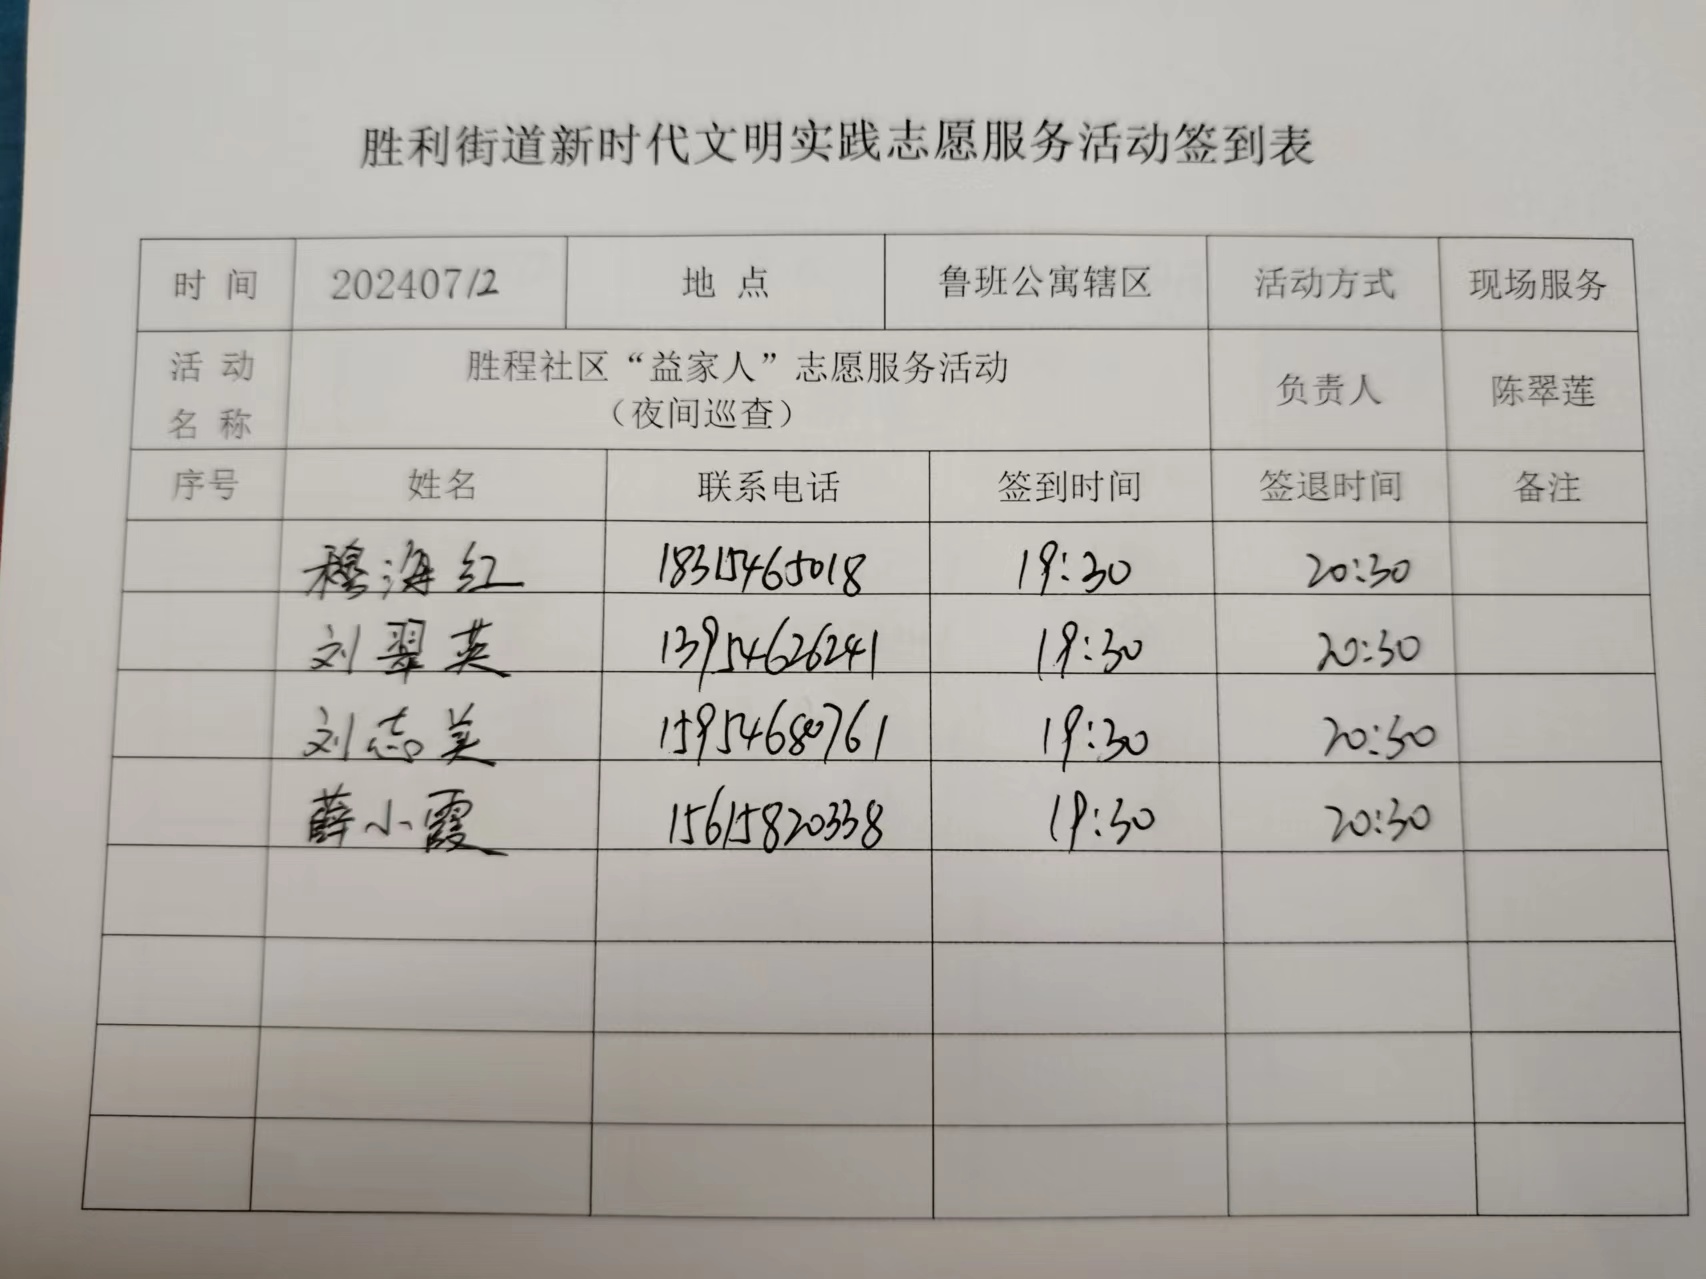 胜利街道新时代文明实践志愿服务活动签到表
时 间 20240712 地 点 鲁班公寓辖区 活动方式 现场服务
活 动 名 称 胜程社区“益家人”志愿服务活动 负责人 陈翠莲
（夜间巡查）
序号 姓名 联系电话 签到时间 签退时间 备注
穆海红 18315465018 19:30 20:30
刘翠英 13954626241 19:30 20:30
刘志美 15954680761 19:30 20:30
薛小霞 15615820338 19:30 20:30